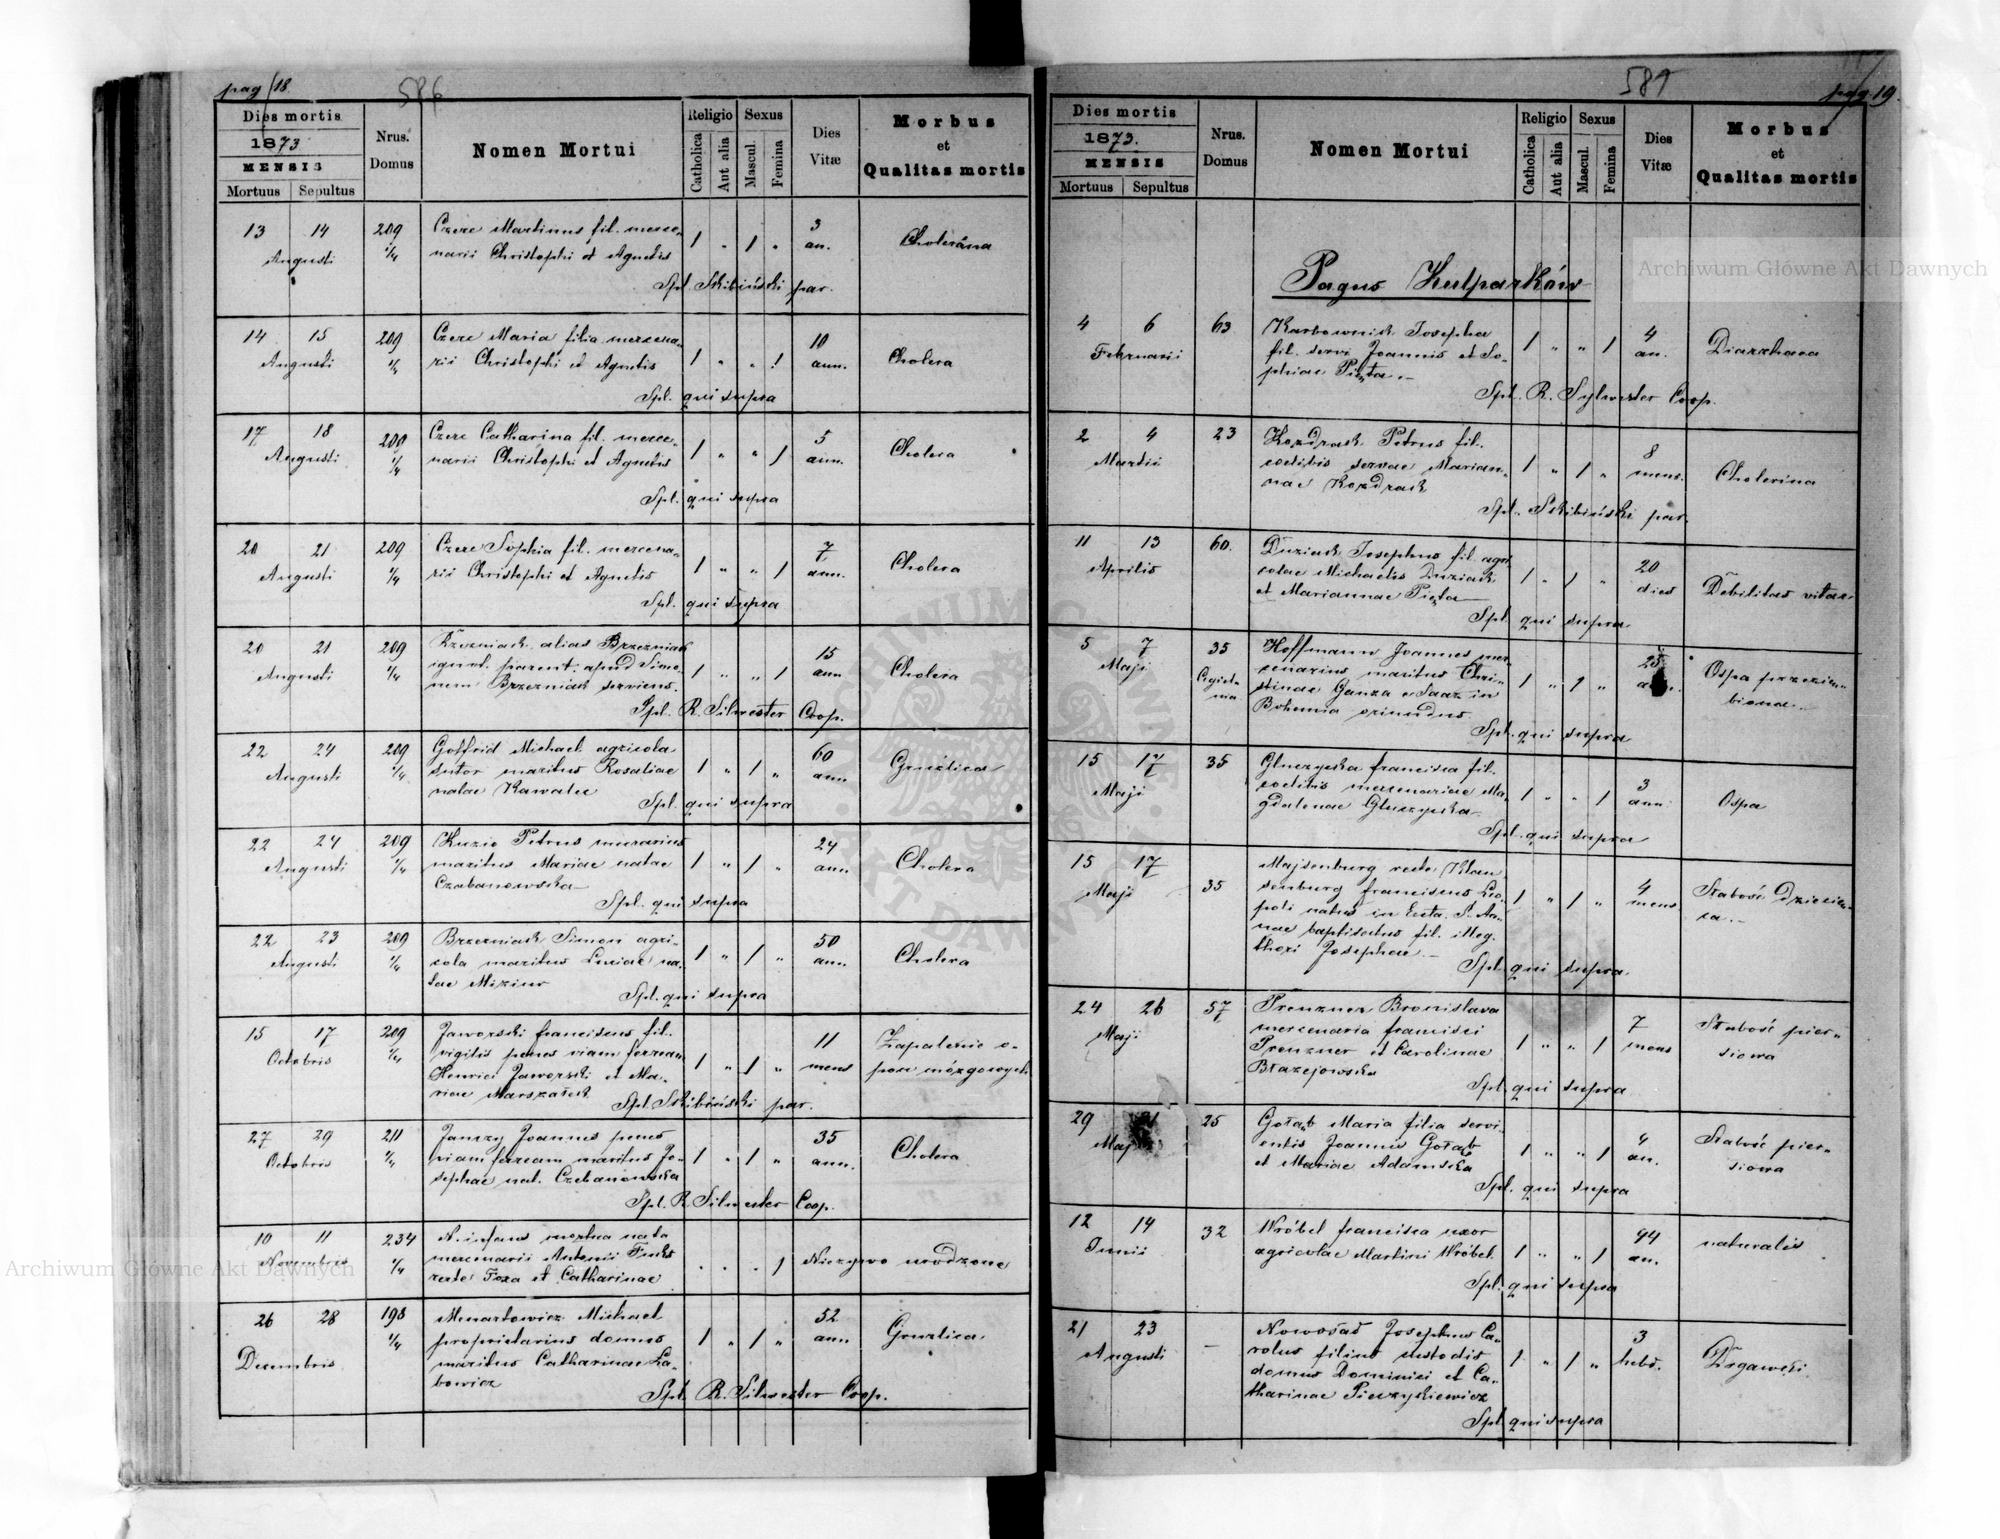 pag 18
586
Dies mortis
1873
MENSIS
Mortuus Sepultus
Nrus. Domus
Nomen Mortui
Religio
Catholica
Aut alia
Sexus
Mascul.
Femina
Dies Vitæ
Morbus
et
Qualitas mortis
13 14 209 Czere Martinus fil. merce- 3
Augusti 1/4 narii Christophi et Agnetis 1 „ 1 „ an.
Spl Skibiński par.
14 15 209 Czere Maria filia mercena- 10
Augusti 1/4 rii Christophi et Agnetis 1 „ „ 1 ann. Cholera
Spl. qui supra
17 18 209 Czere Catharina fil. merce- 5
Augusti 1/4 narii Christophi et Agnetis 1 „ „ 1 ann. Cholera
Spl. qui supra
20 21 209 Czere Sophia fil. mercena- 7
Augusti 1/4 rii Christophi et Agnetis 1 „ „ 1 ann. Cholera
Spl. qui supra
20 21 209 alias Brzezniak 15
Augusti 1/4 ignot. parent. apud Simo- 1 „ „ 1 ann Cholera
nem Brzezniak serviens.
Spl. R. Silwester Coop.
22 24 209 Goffrid Michael agricola 60
Augusti 1/4 sutor maritus Rosaliae 1 „ 1 „ ann Gruźlica
natae Kawalec
Spl. qui supra
22 24 209 Kuzio Petrus murarius 24
Augusti 1/4 maritus Mariae natae 1 „ 1 „ ann Cholera
Czabanowska
Spl. qui supra
22 23 209 Brzezniak Simon agri- 50
Augusti 1/4 cola maritus Luciae na- 1 „ 1 „ ann. Cholera
tae
Spl. qui supra
15 17 209 Jaworski franciscus fil. 11 Zapalenie o-
Octobris 1/4 vigilis penes viam ferream 1 „ 1 „ mens pon mózgowych
Henrici Jaworski et Ma-
riae Marszałek
Spl. Skibiński par.
27 29 211 Janczy Joannes penes 35
Octobris 1/4 viam ferream maritus Jo- 1 „ 1 „ ann. Cholera
sephae nat. Czebanowska
Spl. R Silwester Coop.
10 11 234 N. infans mortua nata
Novembris 1/4 mercenarii Antonii . . . 1 Nieżywo urodzone
recte et Catharinae
26 28 198 Minartowicz Michael 52
Decembris 1/4 proprietarius domus 1 „ 1 „ ann. Gruzlica
maritus Catharinae La-
bowicz
Spl. R. Silwester Coop.
587
pag 19.
Dies mortis
1873.
MENSIS
Mortuus Sepultus
Nrus. Domus
Nomen Mortui
Religio
Catholica
Aut alia
Sexus
Mascul.
Femina
Dies Vitæ
Morbus
et
Qualitas mortis
Pagus Kulparków
4 6 63 Karbownik Josepha 4
Februarii fil. servi Joannis et So- 1 „ „ 1 an. Diarrhaea
phiae Pięta.
Spl. R. Sylwester Coop.
2 4 23 Kozdrack Petrus fil. 8
Martii coelibis servae Marian- 1 „ 1 „ mens. Cholerina
nae Kozdrack
Spl. Skibiński par.
11 13 60. Duziak Josephus fil. agri- 20
Aprilis colae Michaelis Duziak 1 „ 1 „ dies Debilitas vitae
et Mariannae Pięta
Spl. qui supra
5 7 35 Hoffmann Joannes mer-
Maji Cegiel- cenarius maritus Chri- 1 „ 1 „ Ospa przezięu-
nia stinae Ganza e Saaz in biona
Bohemia oriundus.
Spl. qui supra
15 17 35 Gluczyska francisca fil. 3
Maji coelibis mercenariae Ma- 1 „ „ 1 ann. Ospa
gdalenae Gluczyska
Spl. qui supra
15 17 Majsenburg recte Klau- 4
Maji 35 senburg franciscus Leo- 1 „ 1 „ mens Słabość Dziecien-
poli natus in Eccla. S. An- na.
nae baptisatus fil. illeg.
thori Josephae.
Spl. qui supra.
24 26 57 Prenzner Bronislava 7 Słabość pier-
Maji mercenaria francisci 1 „ „ 1 mens siowa
Prenzner et Carolinae
Błazejowska
Spl. qui supra
29 31 25 Gołąb Maria filia servi- 4 Słabość pier-
Maji entis Joannis Gołąb 1 „ „ 1 an. siowa
et Mariae Adamska
Spl. qui supra
12 14 32 Wróbel francisca uxor 44
Junii agricolae Martini Wróbel. 1 „ „ 1 an. naturalis
Spl. qui supra
21 23 — Noworad Josephus Ca- 3
Augusti rolus filius custodis 1 „ 1 „ hebd. Drgawki
domus Dominici et Ca-
tharinae Pieczykiewicz
Spl. qui supra
Archiwum Główne Akt Dawnych
Archiwum Główne Akt Dawnych
ARCHIWUM GŁÓWNE AKT DAWNYCH